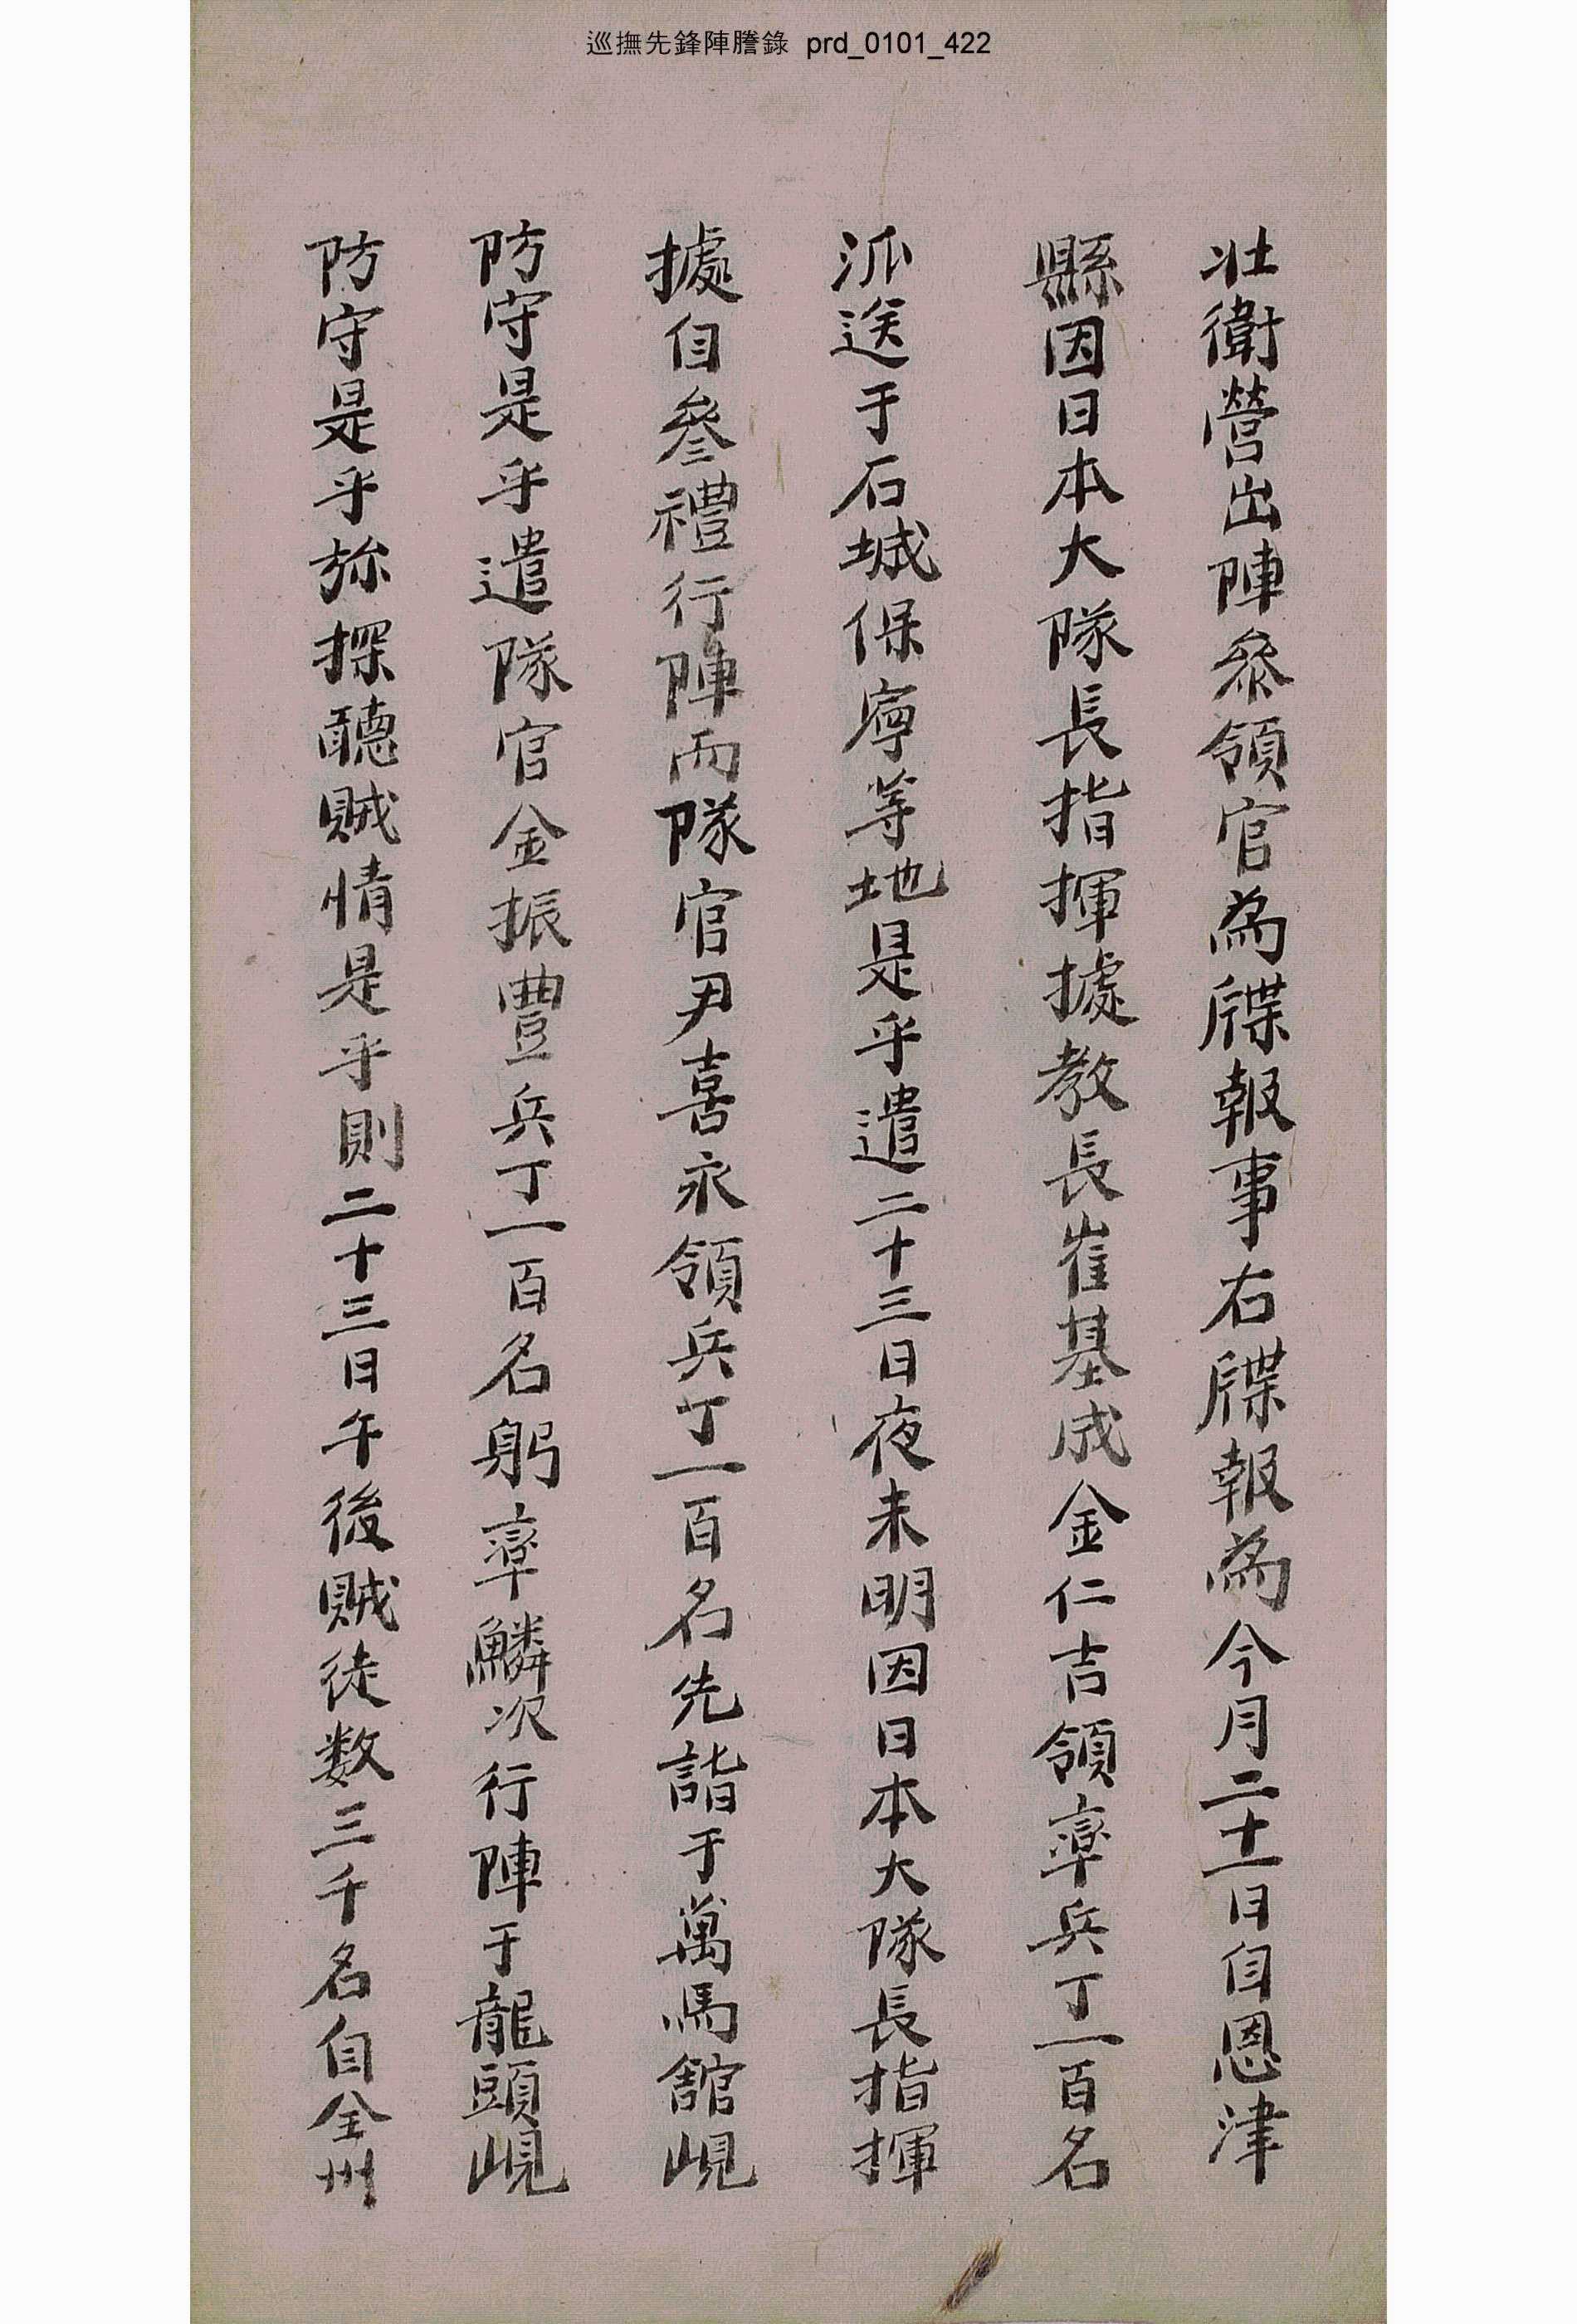 巡撫先鋒陣謄錄 prd_0101_422
壯衛營出陣參領官爲牒報事右牒報爲今月二十一日自恩津
縣因日本大隊長指揮據教長崔基成金仁吉領率兵丁一百名
派送于石城保寧等地是乎遣二十三日夜未明因日本大隊長指揮
據自叅禮行陣而隊官尹喜永領兵丁一百名先詣于萬馬舘峴
防守是乎遣隊官金振豐兵丁一百名躬率鱗次行陣于龍頭峴
防守是乎旀探聽賊情是乎則二十三日午後賊徒数三千名自全州